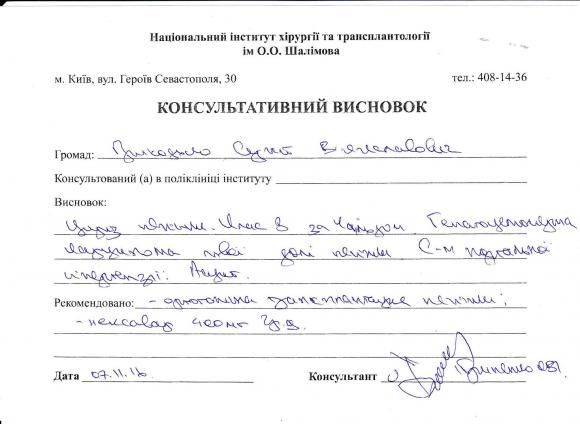 Національний інститут хірургії та трансплантології
ім О.О. Шалімова
м. Київ, вул. Героїв Севастополя, 30 тел.: 408-14-36
КОНСУЛЬТАТИВНИЙ ВИСНОВОК
Громад: Приходько Сергій Вячеславович
Консультований (а) в поліклініці інституту
Висновок:
Цироз печінки. Клас В за Чайлдом. Гепатоцелюлярна
карцинома лівої долі печінки. С-м портальної
гіпертензії. Асцит.
Рекомендовано: - ортотопічна трансплантація печінки;
- нексавар 400 мг 2 р.д.
Дата 07.11.16 Консультант